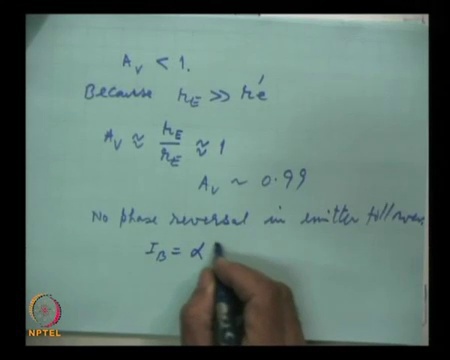 A_V < 1.
Because r_E >> r'e
A_V ≈ r_E/r_E ≈ 1
A_V ~ 0.99
No phase reversal in emitter follower
I_B = α
NPTEL